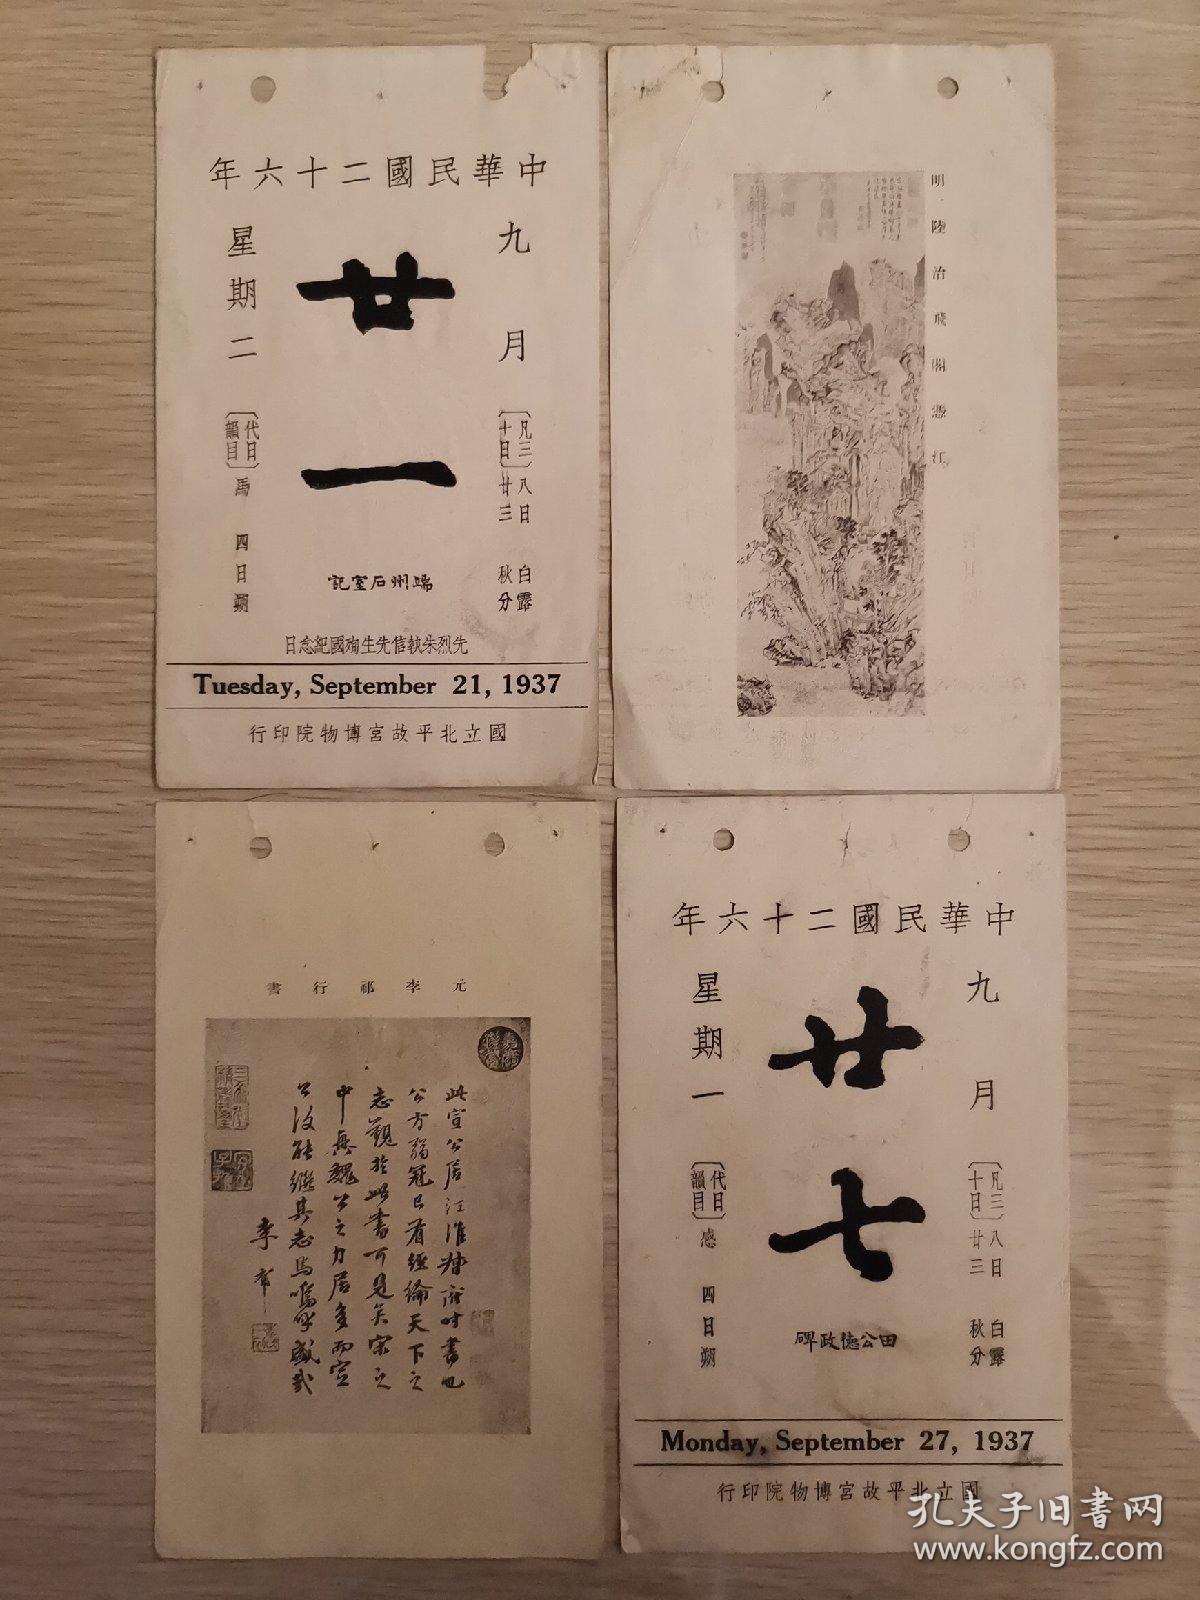 中華民國二十六年
九月
廿一
星期二
凡三十日
八日白露
廿三秋分
代日韻目
馬
四日朔
端州石室記
先烈朱執信先生殉國紀念日
Tuesday, September 21, 1937
國立北平故宮博物院印行
明陸治飛閣憑江
元李祁行書
此宣公居江淮
時書也
公方弱冠已有經綸天下之
志觀於此書可見矣宋之
中無魏公之力居多而宣
公復能繼其志焉嗚呼盛哉
李祁
中華民國二十六年
九月
廿七
星期一
凡三十日
八日白露
廿三秋分
代日韻目
感
四日朔
田公德政碑
Monday, September 27, 1937
國立北平故宮博物院印行
孔夫子旧书网
www.kongfz.com